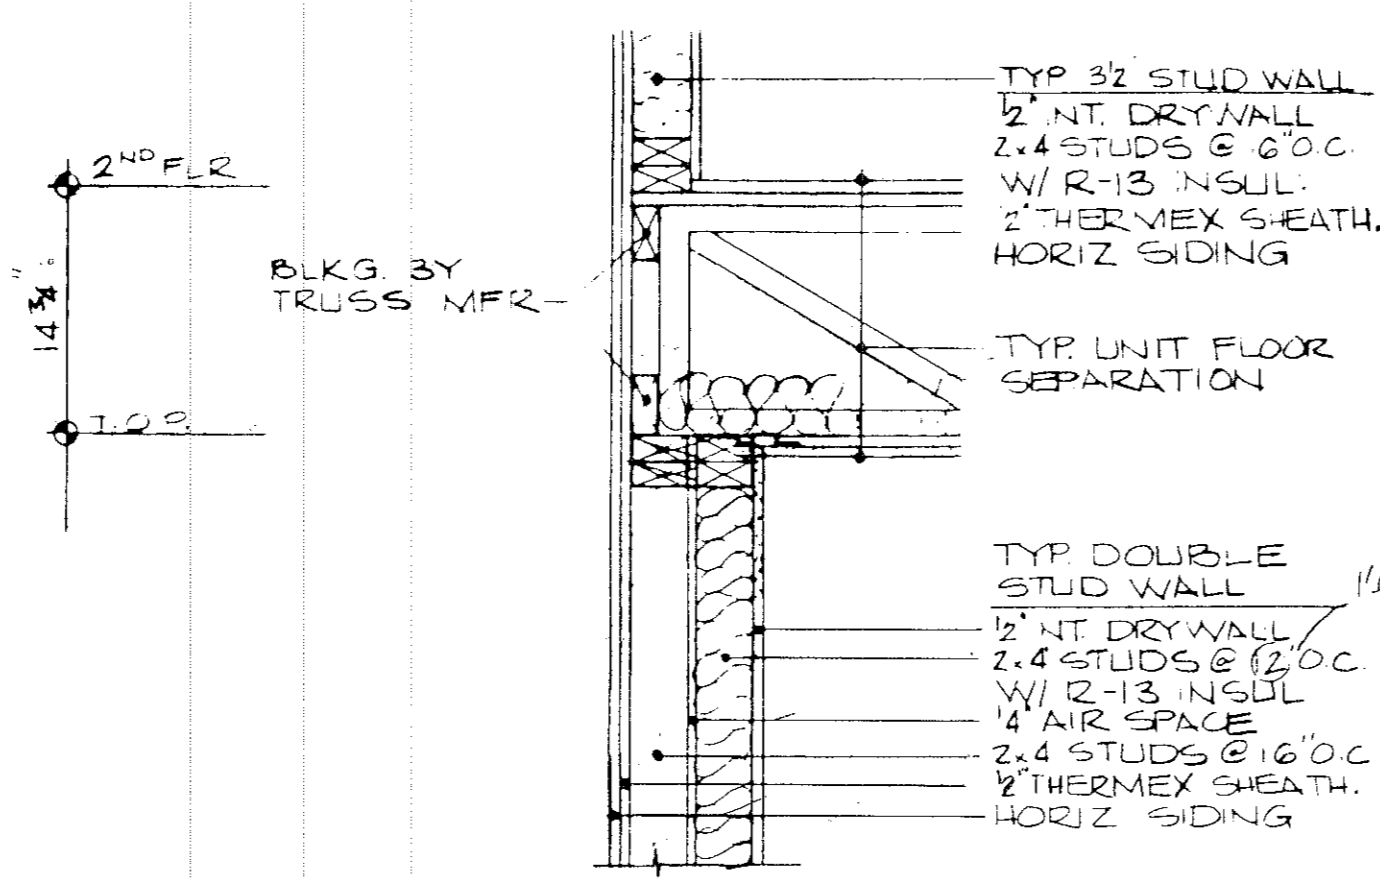 2ND FLR
14 3/4"
T.O.P.
BLKG. BY
TRUSS MFR
TYP 3½ STUD WALL
½" INT. DRYWALL
2x4 STUDS @ 16" O.C.
W/ R-13 INSUL.
½" THERMEX SHEATH.
HORIZ SIDING
TYP. UNIT FLOOR
SEPARATION
TYP. DOUBLE
STUD WALL
½" INT. DRYWALL
2x4 STUDS @ 12" O.C.
W/ R-13 INSUL
¼" AIR SPACE
2x4 STUDS @ 16" O.C
½" THERMEX SHEATH.
HORIZ SIDING